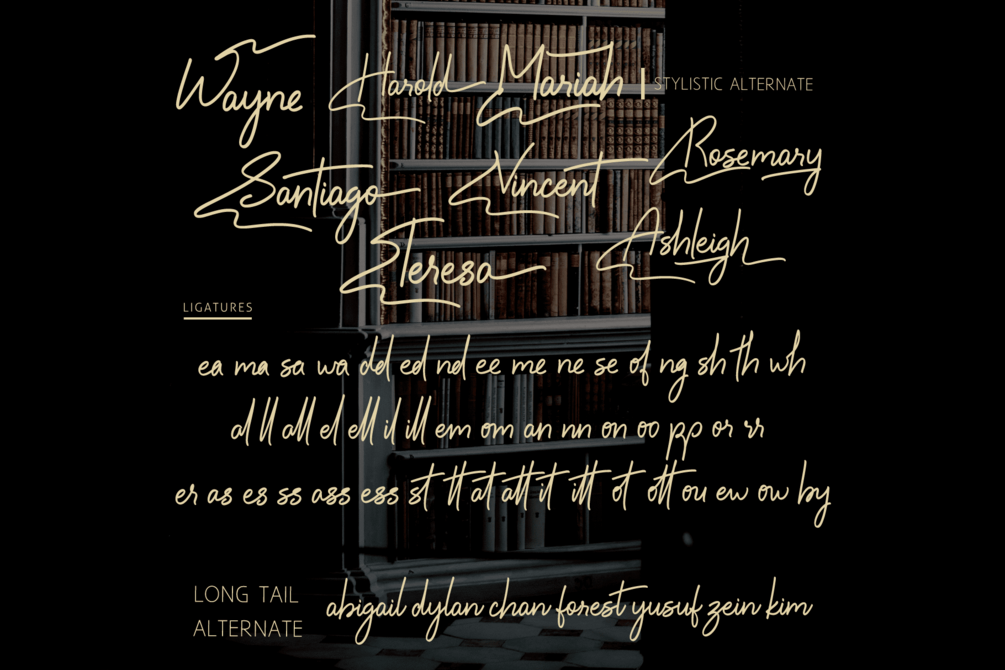 Wayne Harold Mariah | STYLISTIC ALTERNATE
Santiago Vincent Rosemary
Teresa Ashleigh
LIGATURES
ea ma sa wa dd ed nd ee me ne se of ng sh th wh
al ll all el ell il ill em om an nn on oo pp or rr
er as es ss ass ess st tt at att it itt ot ott ou ew ow by
LONG TAIL
ALTERNATE
abigail dylan chan forest yusuf zein kim